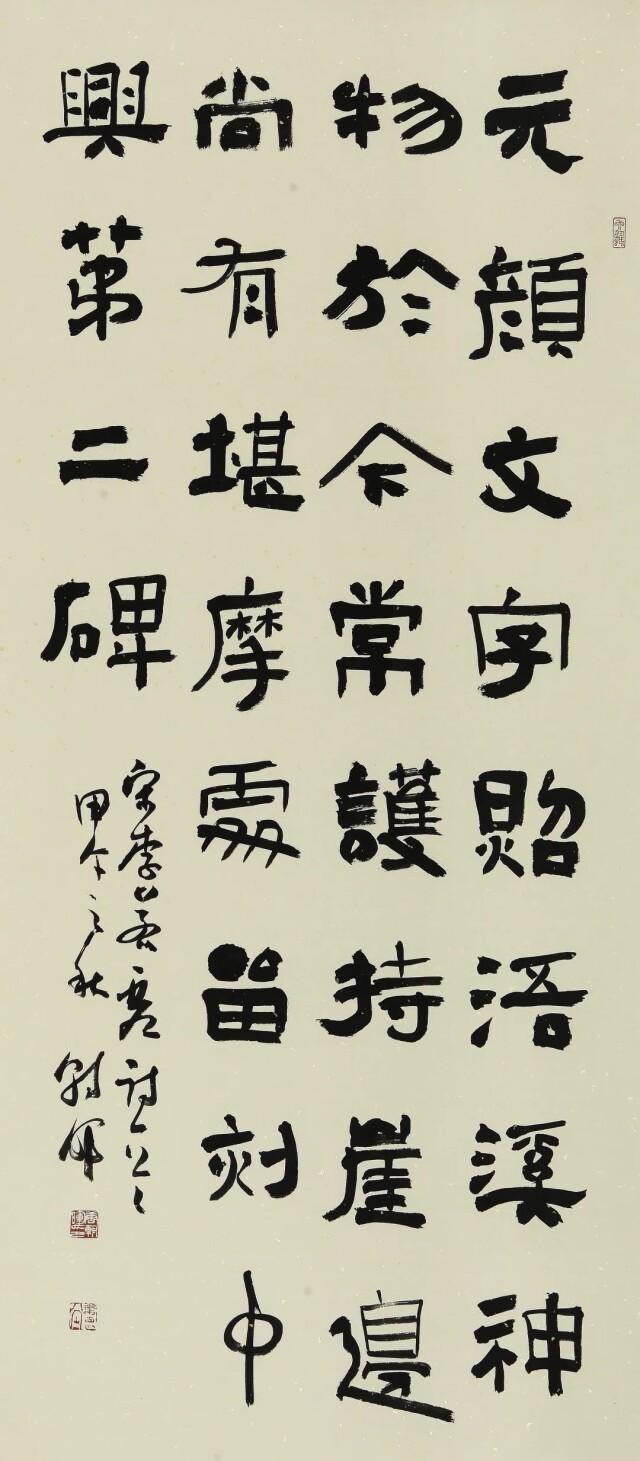 元顔文字照浯溪神
物於今常護持崖邊
尚有堪摩處留刻中
興苐二碑
宋李若虚詩一首
甲午之秋